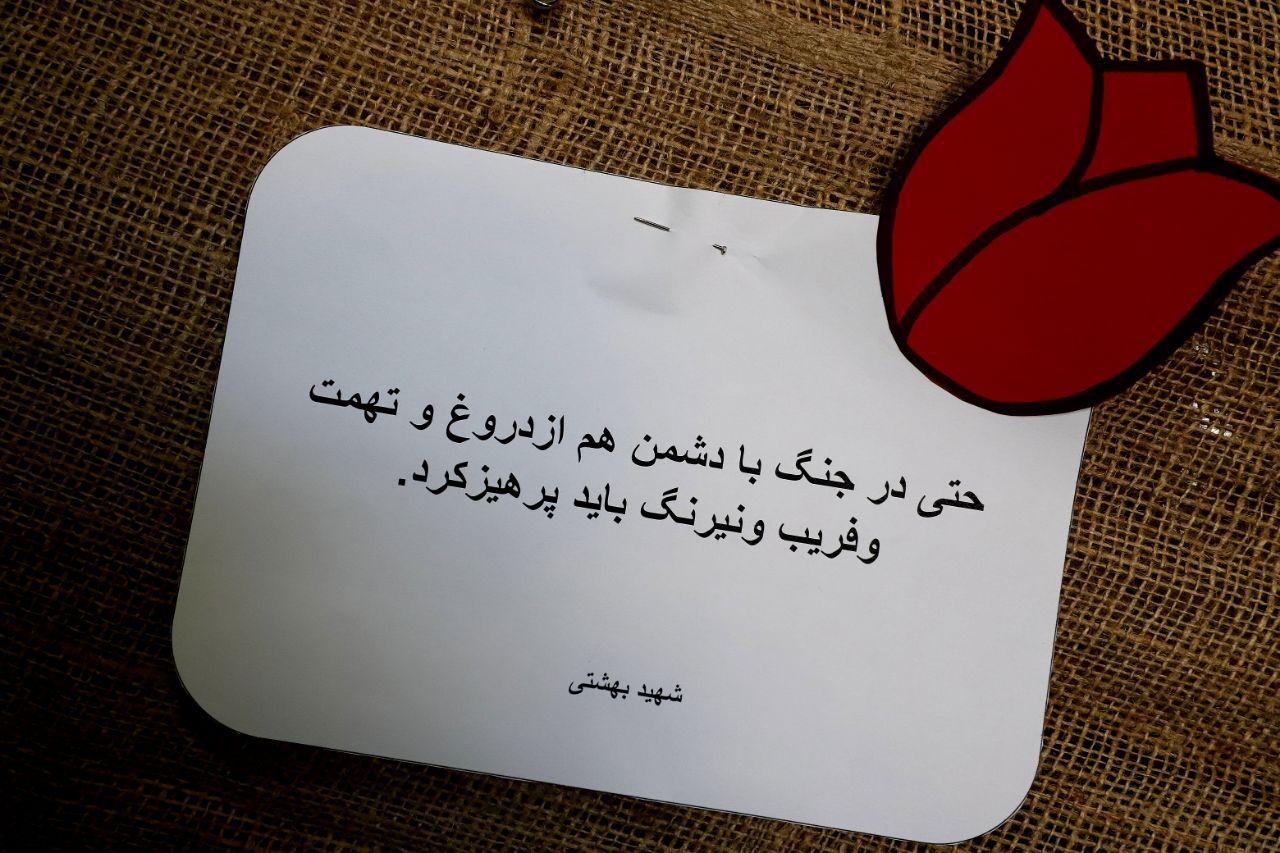 حتی در جنگ با دشمن هم ازدروغ و تهمت
وفریب ونیرنگ باید پرهیزکرد.
شهید بهشتی